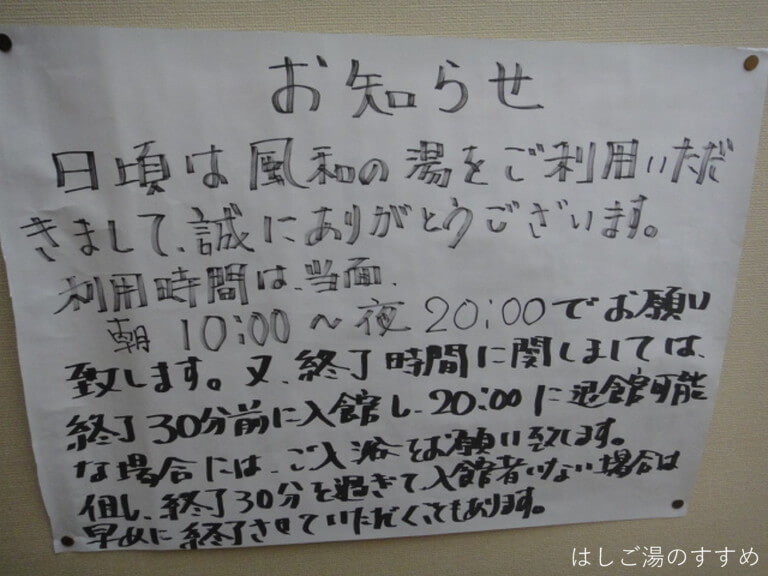 お知らせ
日頃は風和の湯をご利用いただ
きまして、誠にありがとうございます。
利用時間は、当面、
朝 10:00 ～ 夜 20:00 でお願い
致します。又、終了時間に関しましては、
終了30分前に入館し、20:00に退館可能
な場合には、ご入浴をお願い致します。
但し、終了30分を過ぎて入館者いない場合は
早めに終了させていただくこともあります。
はしご湯のすすめ